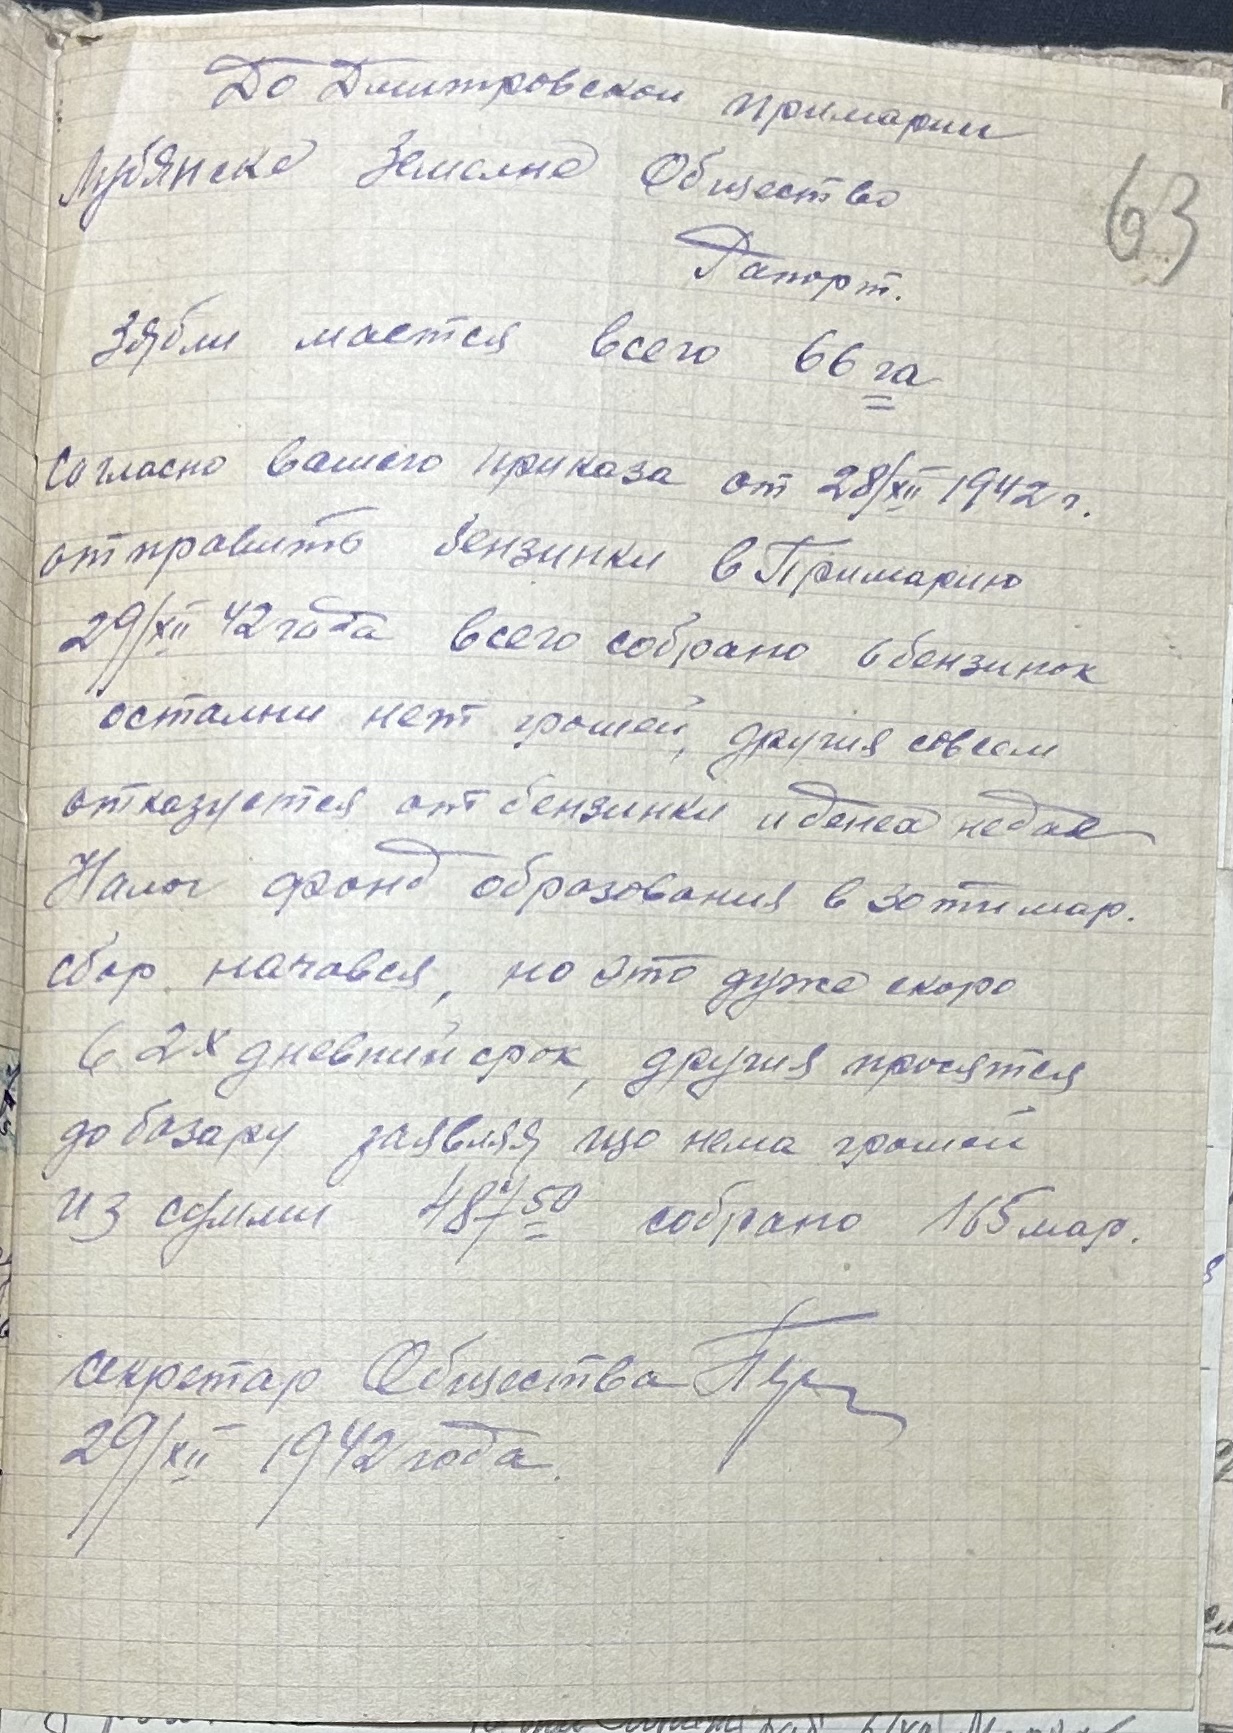 До Дмитровской примарии
Лубянске Земелне Общество
63
Рапорт.
Зябли мается всего 66 га
Согласно вашего приказа от 28/XII 1942 г.
отправить бензинки в Примарию
29/XII 42 года всего собрано 6 бензинок
остални нет грошей, другия совсем
отказуется от бензинки и денег не дае
Налог фонд образования в зо ти мар.
сбор начався, но это дуже скоро
в 2х дневний срок, другия просятся
до базару заявляя що нема грошей
из суммы 487 50 собрано 165 мар.
секретар Общества
29/XII 1942 года.